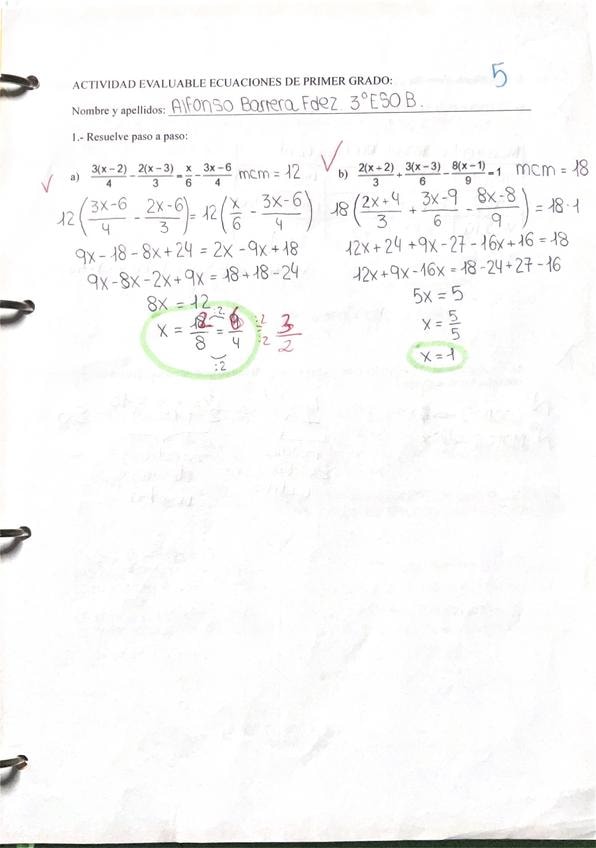 5
ACTIVIDAD EVALUABLE ECUACIONES DE PRIMER GRADO:
Nombre y apellidos: Alfonso Barrera Fdez 3ºESO B.
1.- Resuelve paso a paso:
a) 3(x-2)/4 - 2(x-3)/3 = x/6 - 3x-6/4 mcm = 12
12(3x-6/4 - 2x-6/3) = 12(x/6 - 3x-6/4)
9x-18-8x+24 = 2x-9x+18
9x-8x-2x+9x = 18+18-24
8x = 12
x = 12/8 = 6/4 = 3/2
:2
:2
:2
:2
b) 2(x+2)/3 + 3(x-3)/6 - 8(x-1)/9 = 1 mcm = 18
18(2x+4/3 + 3x-9/6 - 8x-8/9) = 18·1
12x+24+9x-27-16x+16 = 18
12x+9x-16x = 18-24+27-16
5x = 5
x = 5/5
x = 1